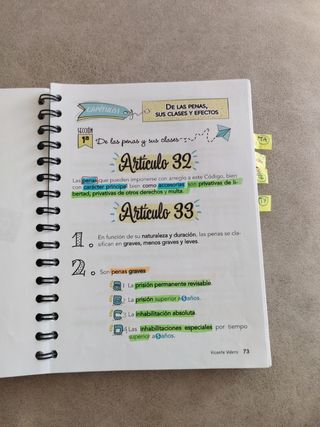 CAPÍTULO I
DE LAS PENAS,
SUS CLASES Y EFECTOS
SECCIÓN
1ª
De las penas y sus clases
Artículo 32
Las penas que pueden imponerse con arreglo a este Código, bien
con carácter principal bien como accesorias son privativas de li-
bertad, privativas de otros derechos y multa.
Artículo 33
1. En función de su naturaleza y duración, las penas se cla-
sifican en graves, menos graves y leves.
2. Son penas graves
A: La prisión permanente revisable.
B: La prisión superior a 5 años.
C: La inhabilitación absoluta.
D: Las inhabilitaciones especiales por tiempo
superior a 5 años.
Vicente Valera 73